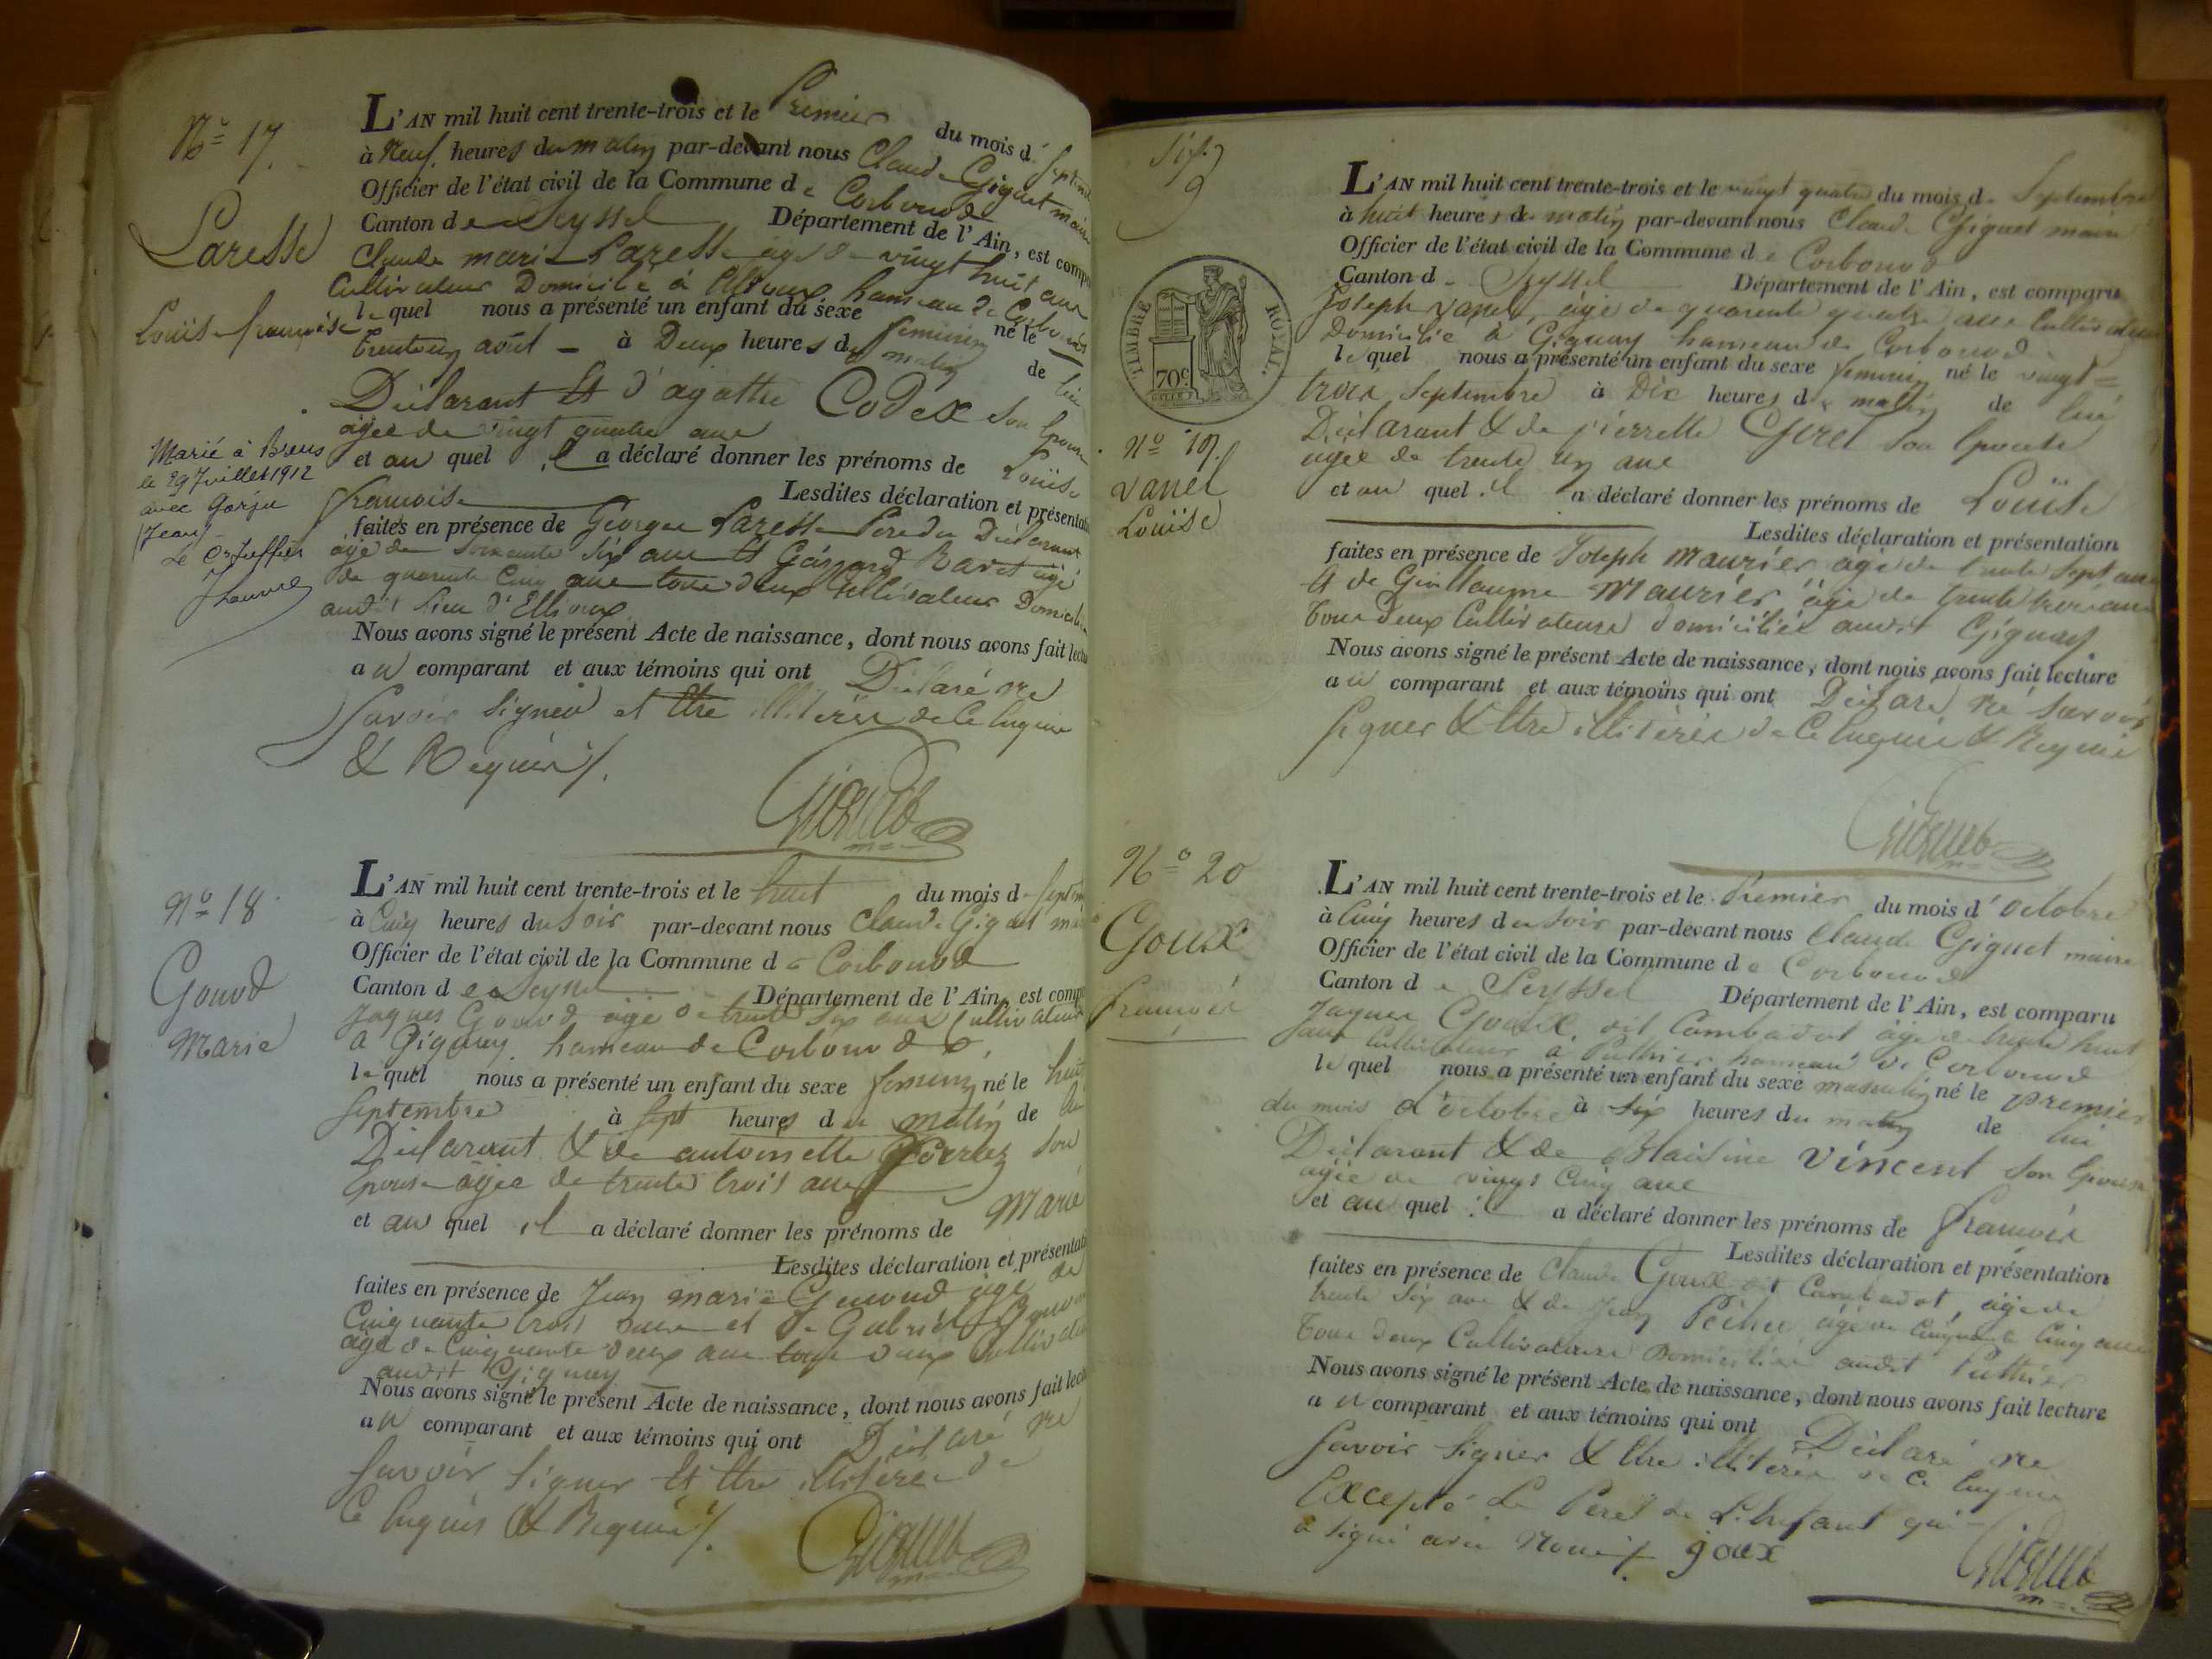 N° 17.
Laresse
Louise françoise
Marié à Brens
le 29 Juillet 1912
avec Gorju
(Jean)
Le Greffier
L'AN mil huit cent trente-trois et le Premier du mois d. Septemb
à Neuf heures du matin par-devant nous Claude Giguet maire
Officier de l'état civil de la Commune de Corbonod
Canton de Seyssel Département de l'Ain, est comp
Claude marie Laresse agé de vingt huit ans
Cultivateur Domicilié à hameau de Corbonod
lequel nous a présenté un enfant du sexe feminin né le
trente un août - à Deux heures du matin de lui
Déclarant et d'agathe Codex son Epouse
agée de vingt quatre ans
et au quel il a déclaré donner les prénoms de Louise
françoise Lesdites déclaration et présentati
faites en présence de George Laresse Pere du Déclarant
agé de soixante six ans et Gaspard Ravet agé
de quarente Cinq ans tous deux Cultivateurs Domiciliés
audit lieu d'
Nous avons signé le présent Acte de naissance, dont nous avons fait lectu
au comparant et aux témoins qui ont Déclaré ne
savoir signer et être illiterés de Ce Enquis
& Requis /.
Giguet
N° 18
Gonod
Marie
L'AN mil huit cent trente-trois et le huit du mois d. septem
à Cinq heures du soir par-devant nous Claude Giguet mai
Officier de l'état civil de la Commune de Corbonod
Canton de Seyssel Département de l'Ain, est comp
Jaques Gonod agé de trente six ans Cultivateur
à Gignay hameau de Corbonod
lequel nous a présenté un enfant du sexe feminin né le huit
Septembre à sept heures du matin de lui
Déclarant & de antoinette son
Epouse agée de trente trois ans
et au quel il a déclaré donner les prénoms de Marie
Lesdites déclaration et présentati
faites en présence de Jean marie agé de
Cinquante trois ans et de Gabriel
agé de Cinquante deux ans tous deux Cultivateurs
audit Gignay
Nous avons signé le présent Acte de naissance, dont nous avons fait lect
au comparant et aux témoins qui ont Déclaré ne
savoir signer et être illiterés de
Ce Enquis & Requis /.
Giguet
9
TIMBRE ROYAL.
70c
N° 19.
vanel
Louise
L'AN mil huit cent trente-trois et le vingt quatre du mois d. Septembre
à huit heures du matin par-devant nous Claude Giguet maire
Officier de l'état civil de la Commune de Corbonod
Canton d. Seyssel Département de l'Ain, est comparu
Joseph vanel, agé de quarente quatre ans Cultivateur
Domicilié à Gignay hameau de Corbonod
lequel nous a présenté un enfant du sexe feminin né le vingt=
trois Septembre à Dix heures du matin de lui
Déclarant & de pierrette son Epouse
agée de trente un ans
et au quel il a déclaré donner les prénoms de Louise
Lesdites déclaration et présentation
faites en présence de Joseph Maurier agé de trente sept ans
et de Guillaume Maurier agé de trente trois ans
tous Deux Cultivateurs domiciliés audit Gignay.
Nous avons signé le présent Acte de naissance, dont nous avons fait lecture
au comparant et aux témoins qui ont Déclaré ne savoir
signer & être illiterés de Ce Enquis & Requis
Giguet
N° 20
Goux
françois
L'AN mil huit cent trente-trois et le Premier du mois d'octobre
à Cinq heures du soir par-devant nous Claude Giguet maire
Officier de l'état civil de la Commune de Corbonod
Canton de Seyssel Département de l'Ain, est comparu
Jaques Goux, dit Cambadot agé de trente huit
ans Cultivateur à Puthier hameau de Corbonod
lequel nous a présenté un enfant du sexe masculin né le premier
du mois d'octobre à six heures du matin de lui
Déclarant & de Blaisine Vincent son Epouse
agée de vingt Cinq ans
et au quel il a déclaré donner les prénoms de françois
Lesdites déclaration et présentation
faites en présence de Claude Goux dit Cambadot, agé de
trente six ans & de Jean agé de Cinquante Cinq ans
tous deux Cultivateurs Domiciliés audit Puthier
Nous avons signé le présent Acte de naissance, dont nous avons fait lecture
au comparant et aux témoins qui ont Déclaré ne
savoir signer & être illiterés de Ce Enquis
Excepté Le Pere de L'Enfant qui
a signé avec Nous /. goux
Giguet